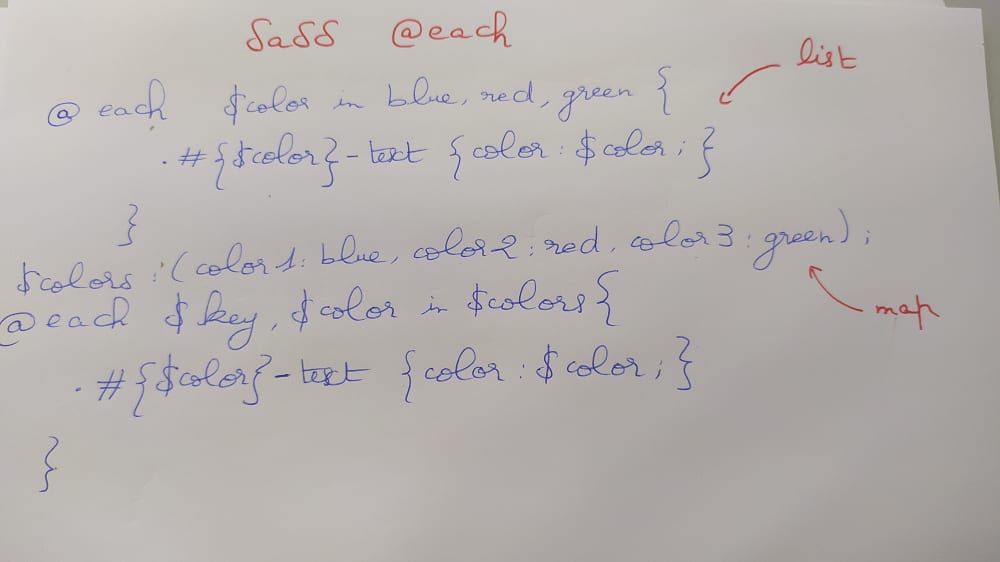 Sass @each
list
@each $color in blue, red, green {
.#{$color}-text {color: $color;}
}
$colors: (color1: blue, color2: red, color3: green);
map
@each $key, $color in $colors {
.#{$color}-text {color: $color;}
}